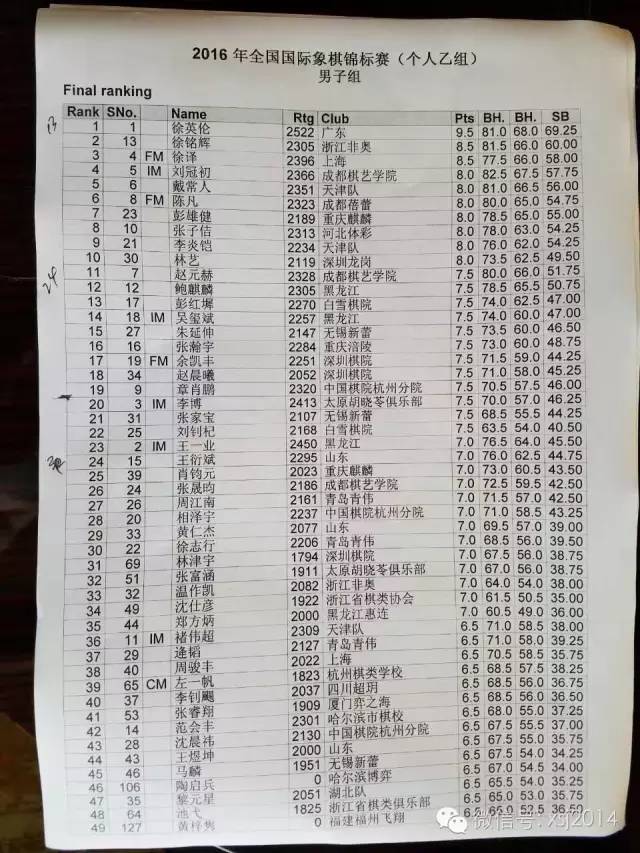 2016 年全国国际象棋锦标赛（个人乙组）
男子组
Final ranking
Rank SNo. Name Rtg Club Pts BH. BH. SB
1 1 徐英伦 2522 广东 9.5 81.0 68.0 69.25
2 13 徐铭辉 2305 浙江非奥 8.5 81.5 66.0 60.00
3 4 FM 徐译 2396 上海 8.5 77.5 66.0 58.00
4 5 IM 刘冠初 2366 成都棋艺学院 8.0 82.5 67.5 57.75
5 6 戴常人 2351 天津队 8.0 81.0 66.5 56.00
6 8 FM 陈凡 2323 成都蓓蕾 8.0 80.0 65.0 54.75
7 23 彭雄健 2189 重庆麒麟 8.0 78.5 65.0 55.00
8 10 张子佶 2313 河北体彩 8.0 78.0 63.0 54.25
9 21 李炎铠 2234 天津队 8.0 76.0 62.0 54.25
10 30 林艺 2119 深圳龙岗 8.0 73.5 62.5 49.50
11 7 赵元赫 2328 成都棋艺学院 7.5 80.0 66.0 51.75
12 12 鲍麒麟 2305 黑龙江 7.5 78.5 65.5 50.75
13 17 彭红墀 2270 白雪棋院 7.5 74.0 62.5 47.00
14 18 IM 吴玺斌 2257 黑龙江 7.5 74.0 60.0 47.00
15 27 朱延伸 2147 无锡新蕾 7.5 73.5 60.0 46.50
16 16 张瀚宇 2284 重庆涪陵 7.5 73.0 60.0 48.75
17 19 FM 余凯丰 2251 深圳棋院 7.5 71.5 59.0 44.25
18 34 赵晨曦 2052 深圳棋院 7.5 71.0 58.0 45.25
19 9 章肖鹏 2320 中国棋院杭州分院 7.5 70.5 57.5 46.00
20 3 IM 李博 2413 太原胡晓苓俱乐部 7.5 70.0 57.0 46.25
21 31 张家宝 2107 无锡新蕾 7.5 68.5 55.5 44.25
22 25 刘钊杞 2168 白雪棋院 7.5 63.5 54.0 40.50
23 2 IM 王一业 2450 黑龙江 7.0 76.5 64.0 45.50
24 15 王衍斌 2295 山东 7.0 76.0 62.5 44.75
25 39 肖钧元 2023 重庆麒麟 7.0 73.0 60.5 43.50
26 24 张晟昀 2186 成都棋艺学院 7.0 72.5 59.5 42.50
27 26 周江南 2161 青岛青伟 7.0 71.5 57.0 42.50
28 20 相泽宇 2237 中国棋院杭州分院 7.0 71.0 58.5 43.25
29 33 黄仁杰 2077 山东 7.0 69.5 57.0 39.00
30 22 徐志行 2206 青岛青伟 7.0 68.5 56.0 39.50
31 69 林津宇 1794 深圳棋院 7.0 67.5 56.5 38.75
32 51 张富涵 1911 太原胡晓苓俱乐部 7.0 67.0 56.0 38.75
33 32 温作凯 2082 浙江非奥 7.0 64.0 54.0 38.00
34 49 沈仕彦 1922 浙江省棋类协会 7.0 61.5 50.5 35.00
35 44 郑方炳 2000 黑龙江惠连 7.0 60.5 49.0 36.00
36 11 IM 褚伟超 2309 天津队 6.5 71.0 58.5 38.00
37 29 逄韬 2127 青岛青伟 6.5 71.0 58.0 39.25
38 40 周骏丰 2022 上海 6.5 70.5 58.5 35.75
39 65 CM 左一帆 1823 杭州棋类学校 6.5 68.5 57.5 38.25
40 37 李钊飓 2037 四川超玥 6.5 68.5 56.0 36.50
41 53 张睿翔 1909 厦门弈之海 6.5 68.0 56.0 36.50
42 14 范会丰 2301 哈尔滨市棋校 6.5 68.0 55.0 37.25
43 28 沈晨祎 2130 中国棋院杭州分院 6.5 67.5 55.5 37.00
44 43 王煜坤 2000 山东 6.5 67.5 55.0 35.75
45 46 马麟 1951 无锡新蕾 6.5 67.5 54.0 34.25
46 106 陶启兵 0 哈尔滨博弈 6.5 67.0 54.5 34.00
47 35 黎元星 2051 湖北队 6.5 65.5 54.0 35.25
48 64 池弋 1825 浙江省棋类俱乐部 6.5 65.0 53.0 35.75
49 127 黄梓隽 0 福建福州飞翔 6.5 65.0 52.5 36.50
微信号: xsj2014